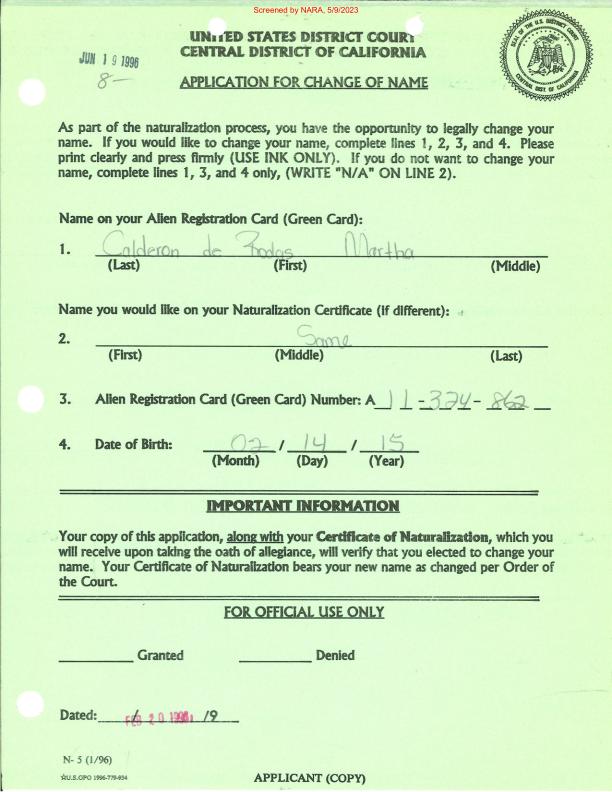 Screened by NARA, 5/9/2023
UNITED STATES DISTRICT COURT
CENTRAL DISTRICT OF CALIFORNIA
SEAL OF THE U.S. DISTRICT COURT
CENTRAL DIST. OF CALIFORNIA
JUN 19 1996
8-
APPLICATION FOR CHANGE OF NAME
As part of the naturalization process, you have the opportunity to legally change your
name. If you would like to change your name, complete lines 1, 2, 3, and 4. Please
print clearly and press firmly (USE INK ONLY). If you do not want to change your
name, complete lines 1, 3, and 4 only, (WRITE "N/A" ON LINE 2).
Name on your Alien Registration Card (Green Card):
1. Calderon de Rodas Martha
(Last) (First) (Middle)
Name you would like on your Naturalization Certificate (if different):
2. Same
(First) (Middle) (Last)
3. Alien Registration Card (Green Card) Number: A 11-324-862
4. Date of Birth: 02 / 14 / 15
(Month) (Day) (Year)
IMPORTANT INFORMATION
Your copy of this application, along with your Certificate of Naturalization, which you
will receive upon taking the oath of allegiance, will verify that you elected to change your
name. Your Certificate of Naturalization bears your new name as changed per Order of
the Court.
FOR OFFICIAL USE ONLY
Granted Denied
Dated: / FEB 20 /19
N- 5 (1/96)
☆U.S.GPO 1996-779-934
APPLICANT (COPY)